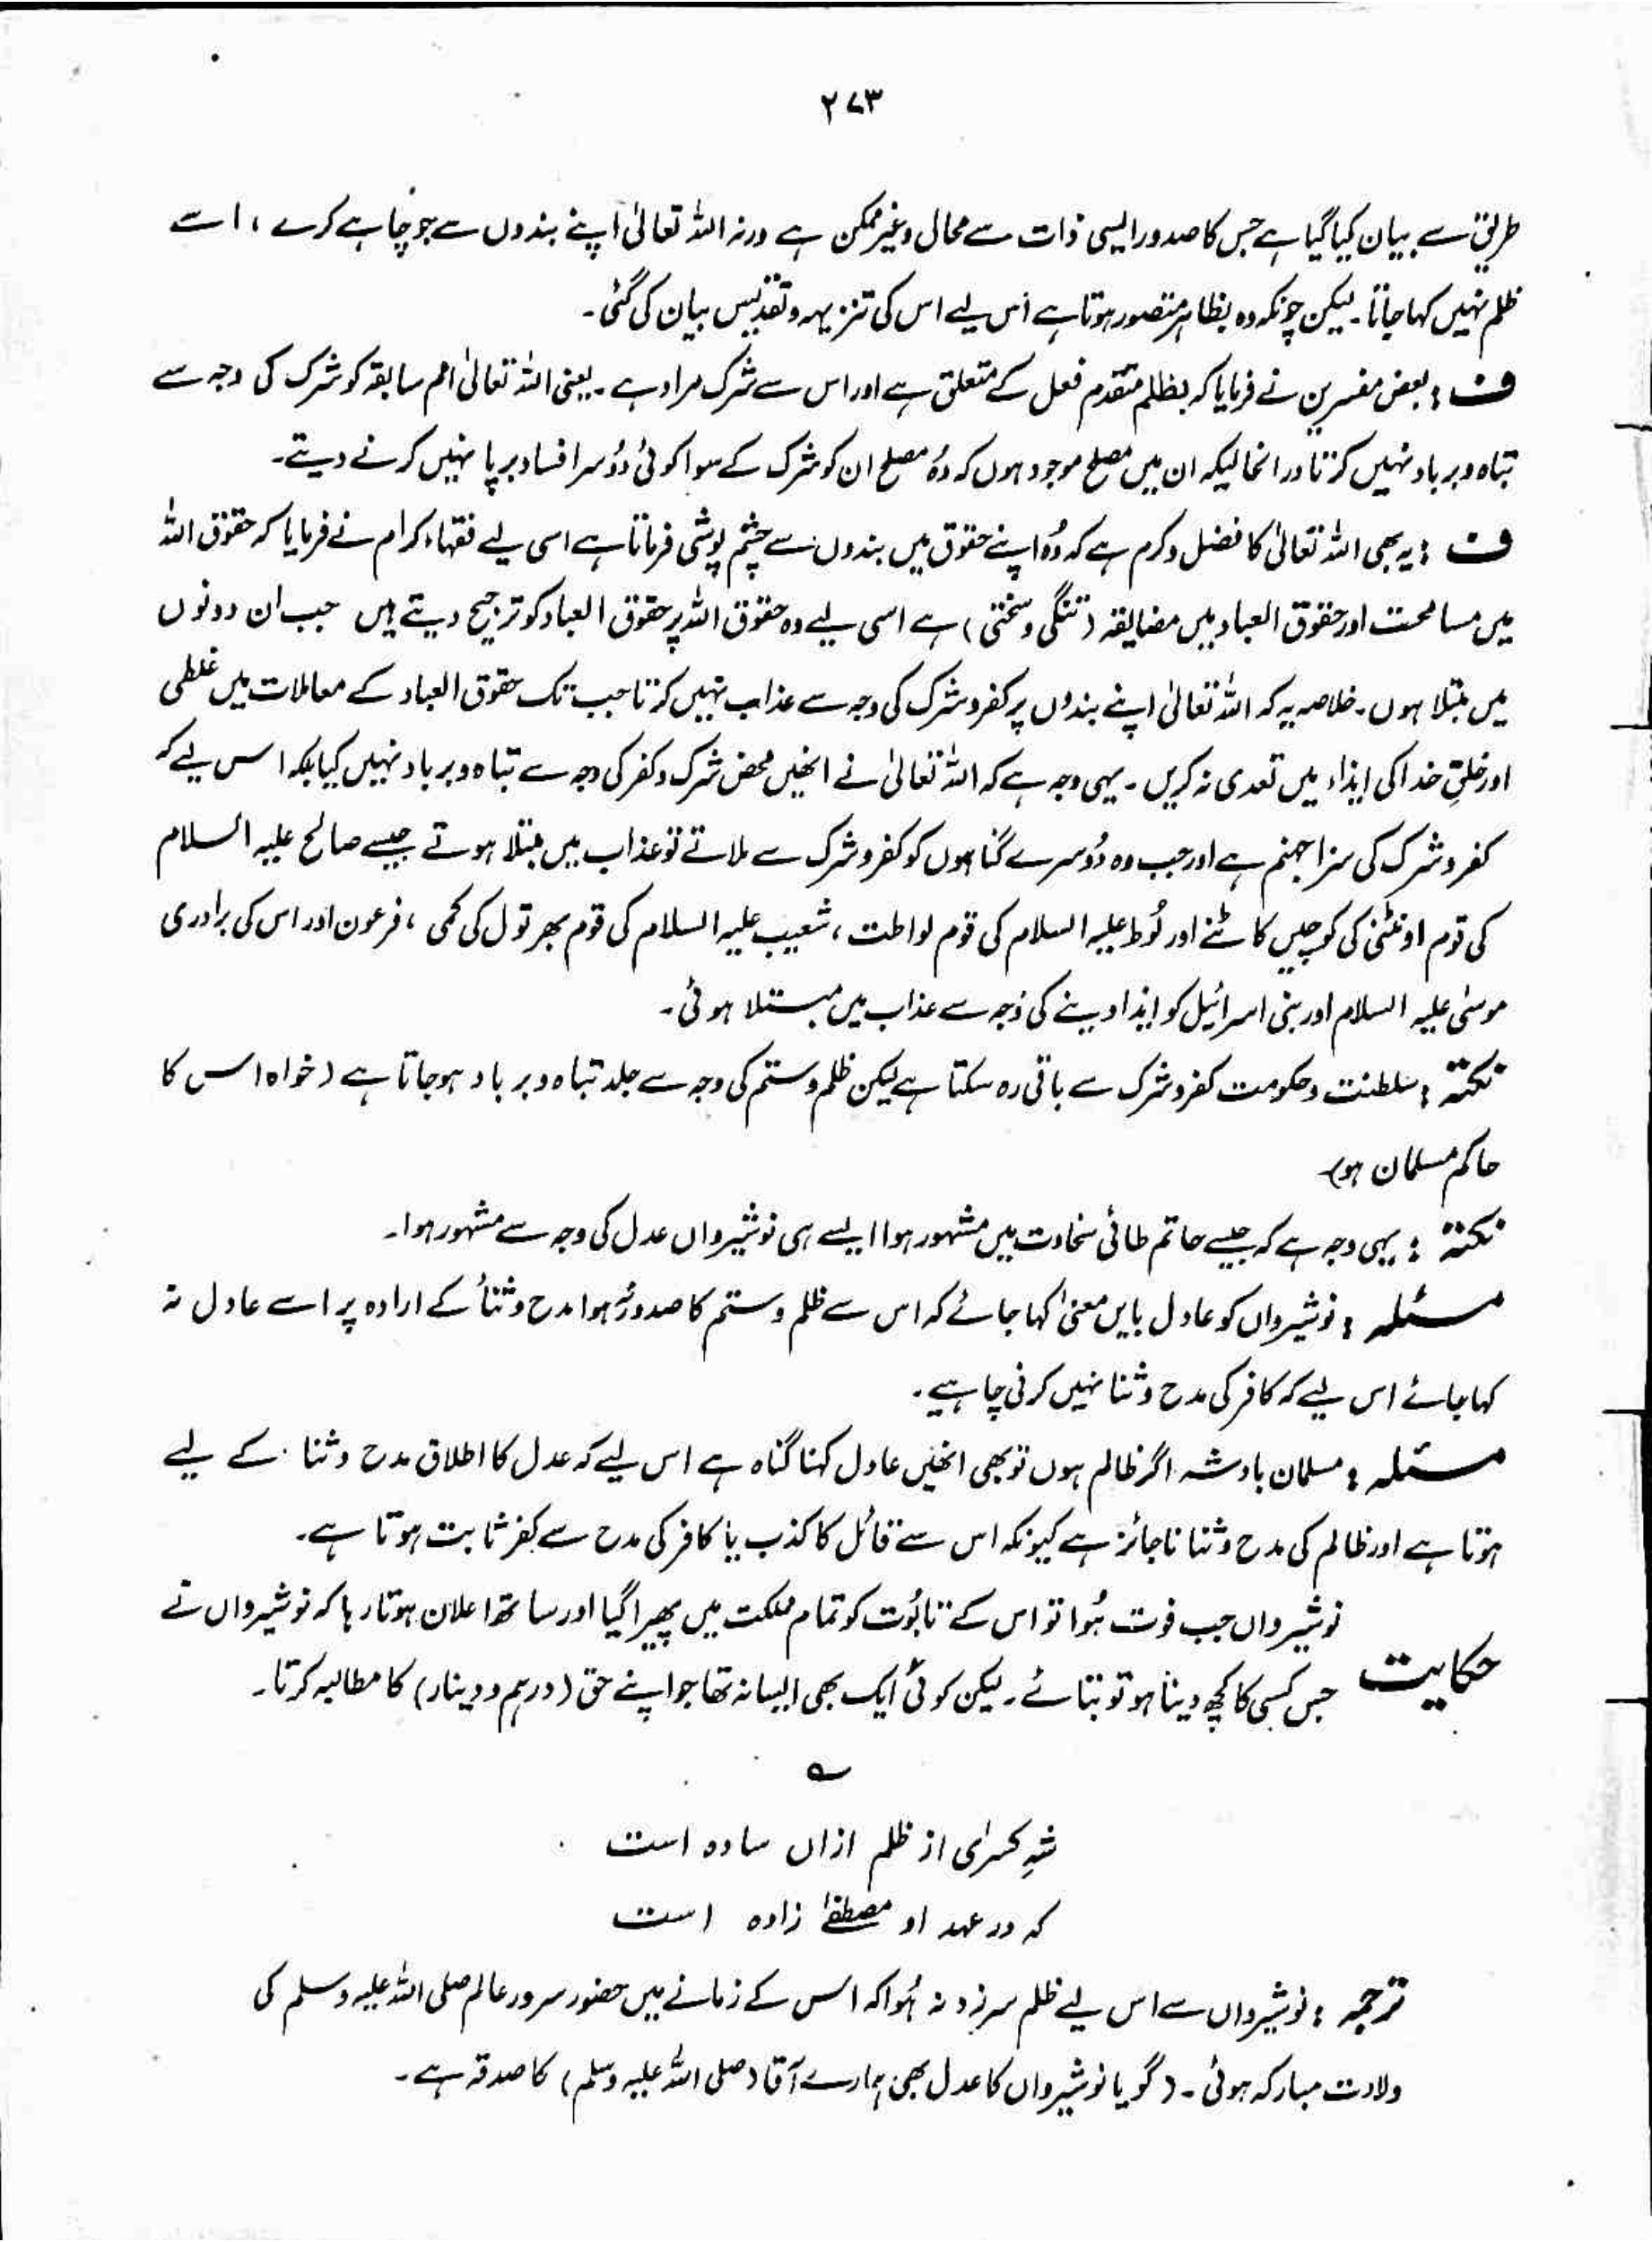 ۲۷۳
طریق سے بیان کیا گیا ہے جس کا صدور ایسی ذات سے محال و غیر ممکن ہے ورنہ اللہ تعالیٰ اپنے بندوں سے جو چاہے کرے ، اسے
ظلم نہیں کہا جاتا ۔ لیکن چونکہ وہ بظاہر متصور ہوتا ہے اس لیے اس کی تنزیہہ و تقدیس بیان کی گئی ۔
ف : بعض مفسرین نے فرمایا کہ بظلم متقدم فعل کے متعلق ہے اور اس سے شرک مراد ہے ۔ یعنی اللہ تعالیٰ امم سابقہ کو شرک کی وجہ سے
تباہ و برباد نہیں کرتا درانحالیکہ ان میں مصلح موجود ہوں کہ وُہ مصلح ان کو شرک کے سوا کوئی دُوسرا فساد برپا نہیں کرنے دیتے ۔
ف : یہ بھی اللہ تعالیٰ کا فضل و کرم ہے کہ وُہ اپنے حقوق میں بندوں سے چشم پوشی فرماتا ہے اسی لیے فقہاء کرام نے فرمایا کہ حقوق اللہ
میں مسامحت اور حقوق العباد میں مضایقہ (تنگی و سختی) ہے اسی لیے وہ حقوق اللہ پر حقوق العباد کو ترجیح دیتے ہیں جب ان دونوں
میں مبتلا ہوں ۔ خلاصہ یہ کہ اللہ تعالیٰ اپنے بندوں پر کفر و شرک کی وجہ سے عذاب نہیں کرتا جب تک حقوق العباد کے معاملات میں غلطی
اور خلقِ خدا کی ایذاء میں تعدی نہ کریں ۔ یہی وجہ ہے کہ اللہ تعالیٰ نے انھیں محض شرک و کفر کی وجہ سے تباہ و برباد نہیں کیا بلکہ اس لیے کہ
کفر و شرک کی سزا جہنم ہے اور جب وہ دُوسرے گناہوں کو کفر و شرک سے ملاتے تو عذاب میں مبتلا ہوتے جیسے صالح علیہ السلام
کی قوم اونٹنی کی کوچیں کاٹنے اور لُوط علیہ السلام کی قوم لواطت ، شعیب علیہ السلام کی قوم بھر تول کی کمی ، فرعون اور اس کی برادری
موسٰی علیہ السلام اور بنی اسرائیل کو ایذا دینے کی وجہ سے عذاب میں مبتلا ہوئی ۔
نکتہ : سلطنت و حکومت کفر و شرک سے باقی رہ سکتا ہے لیکن ظلم و ستم کی وجہ سے جلد تباہ و برباد ہو جاتا ہے (خواہ اس کا
حاکم مسلمان ہو)
نکتہ : یہی وجہ ہے کہ جیسے حاتم طائی سخاوت میں مشہور ہوا ایسے ہی نوشیرواں عدل کی وجہ سے مشہور ہوا ۔
مسئلہ : نوشیرواں کو عادل بایں معنیٰ کہا جائے کہ اس سے ظلم و ستم کا صدور نہ ہوا مدح و ثنا کے ارادہ پر اسے عادل نہ
کہا جائے اس لیے کہ کافر کی مدح و ثنا نہیں کرنی چاہیے ۔
مسئلہ : مسلمان بادشہ اگر ظالم ہوں تو بھی انھیں عادل کہنا گناہ ہے اس لیے کہ عدل کا اطلاق مدح و ثنا کے لیے
ہوتا ہے اور ظالم کی مدح و ثنا ناجائز ہے کیونکہ اس سے قائل کا کذب یا کافر کی مدح سے کفر ثابت ہوتا ہے ۔
نوشیرواں جب فوت ہُوا تو اس کے تابُوت کو تمام مملکت میں پھیرا گیا اور ساتھ اعلان ہوتا رہا کہ نوشیرواں نے
حکایت
جس کسی کا کچھ دینا ہو تو بتائے ۔ لیکن کوئی ایک بھی ایسا نہ تھا جو اپنے حق (درہم و دینار) کا مطالبہ کرتا ۔
؎
شہِ کسرٰی از ظلم ازاں سادہ است
کہ در عہد او مصطفےٰ زادہ است
ترجمہ : نوشیرواں سے اس لیے ظلم سرزد نہ ہُوا کہ اس کے زمانے میں حضور سرور عالم صلی اللہ علیہ وسلم کی
ولادت مبارکہ ہوئی ۔ (گویا نوشیرواں کا عدل بھی ہمارے آقا (صلی اللہ علیہ وسلم) کا صدقہ ہے ۔